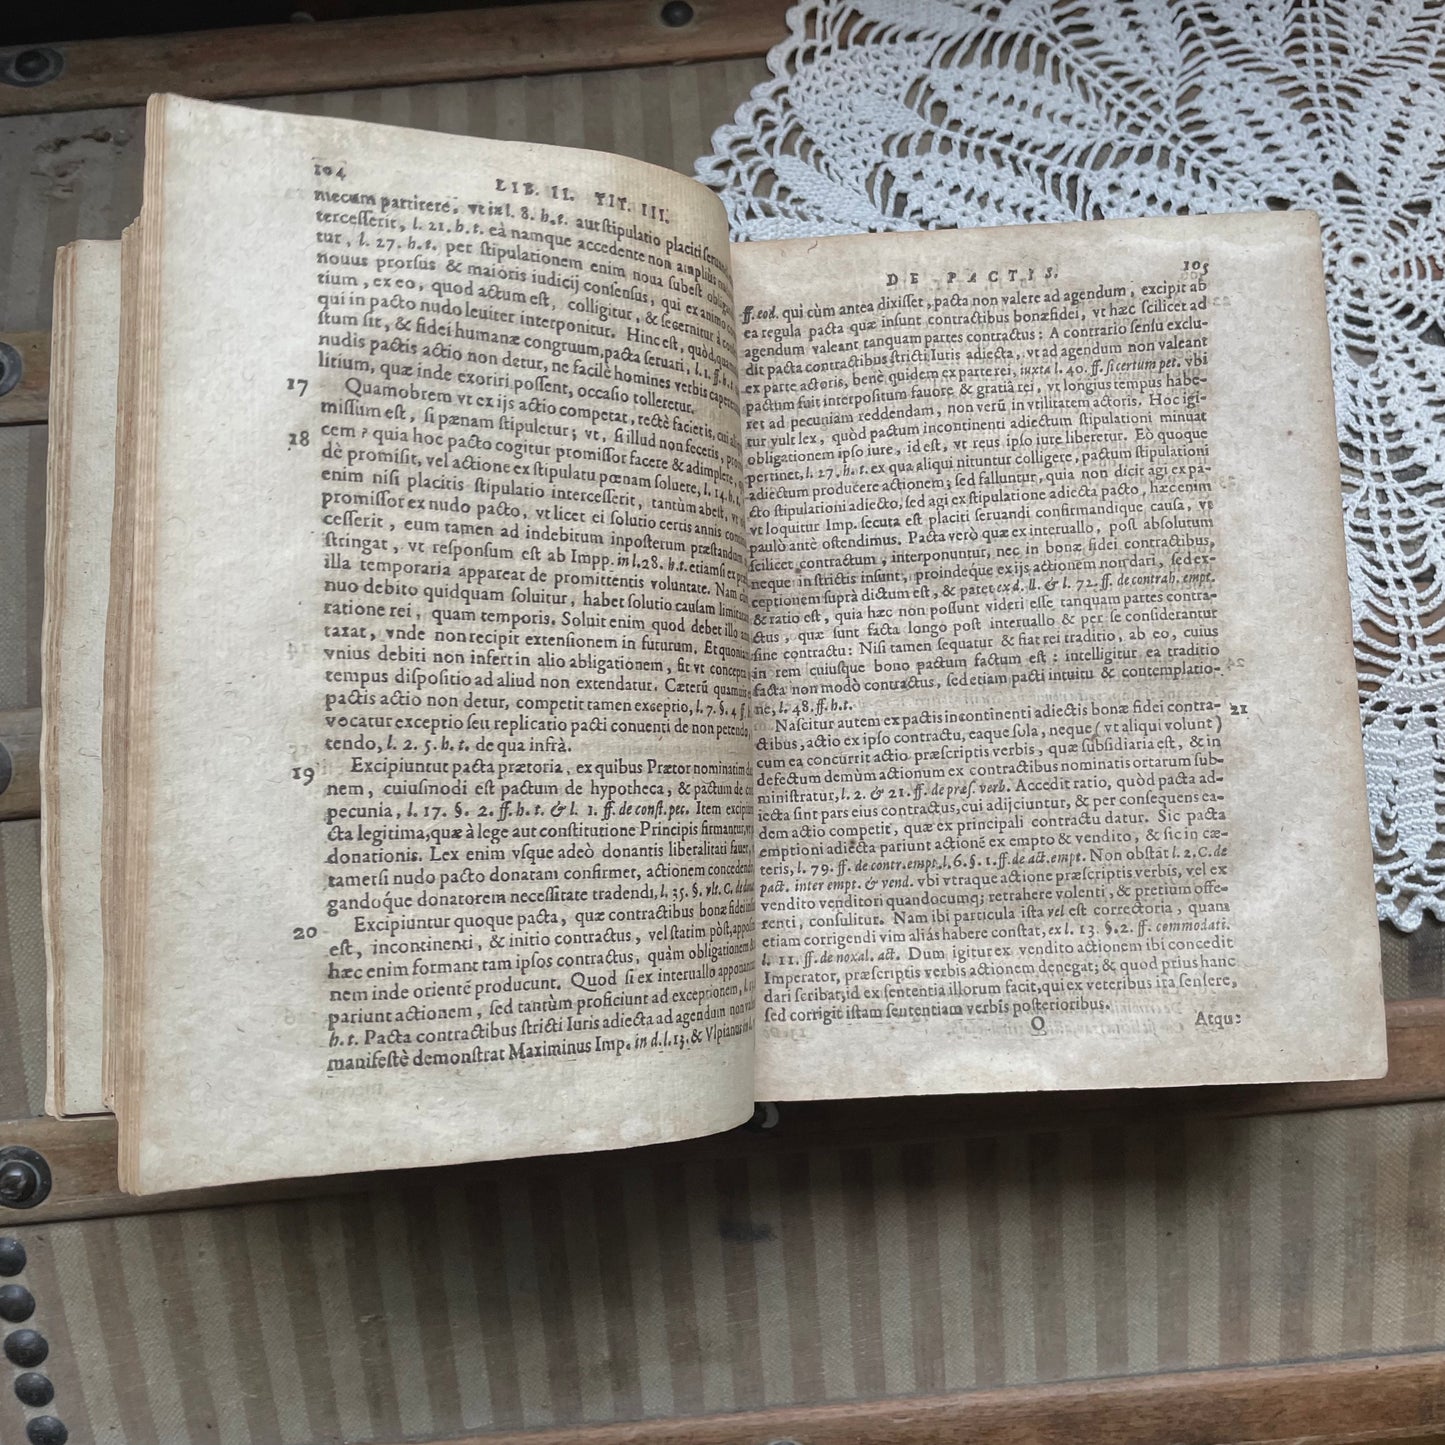 104 LIB. II. TIT. III.
mecum partirere, vt in l. 8. h. t. aut stipulatio placiti seruandi
tercesserit, l. 21. h. t. eà namque accedente non ampliùs
tur, l. 27. h. t. per stipulationem enim noua subest
nouus prorsus & maioris iudicij consensus, qui ex animo
tium, ex eo, quod actum est, colligitur, & segernitur à
qui in pacto nudo leuiter interponitur. Hinc est, quòd,
stum sit, & fidei humanæ congruum, pacta seruari, l. 1. ff. h. t.
nudis pactis actio non detur, ne facilè homines verbis
litium, quæ inde exoriri possent, occasio tolleretur.
17 Quamobrem vt ex ijs actio competat, rectè facietis, cui
missum est, si pœnam stipuletur; vt, si illud non feceris,
18 cem? quia hoc pacto cogitur promissor facere & adimplere,
dè promisit, vel actione ex stipulatu pœnam soluere, l. 14. h. t.
enim nisi placitis stipulatio intercesserit, tantùm abest, vt
promissor ex nudo pacto, vt licet ei solutio certis annis
cesserit, eum tamen ad indebitum inposterum præstandum
stringat, vt responsum est ab Impp. in l. 28. h. t. etiamsi ex
illa temporaria appareat de promittentis voluntate. Nam
nuo debito quidquam soluitur, habet solutio causam
ratione rei, quam temporis. Soluit enim quod debet illo
taxat, vnde non recipit extensionem in futurum. Et quoniam
vnius debiti non infert in alio obligationem, fit vt concepta
tempus dispositio ad aliud non extendatur. Cæterū quamuis
pactis actio non detur, competit tamen exceptio, l. 7. §. 4 ff.
vocatur exceptio seu replicatio pacti conuenti de non petendo,
tendo, l. 2. 5. h. t. de qua infrà.
19 Excipiuntur pacta prætoria, ex quibus Prætor nominatim
nem, cuiusmodi est pactum de hypotheca, & pactum de
pecunia, l. 17. §. 2. ff. h. t. & l. 1. ff. de const. pec. Item
cta legitima, quæ à lege aut constitutione Principis firmantur,
donationis. Lex enim vsque adeò donantis liberalitati fauet,
tametsi nudo pacto donatam confirmet, actionem
gandoque donatorem necessitate tradendi, l. 35. §. vlt. C. de
20 Excipiuntur quoque pacta, quæ contractibus bonæ fidei
est, incontinenti, & initio contractus, vel statim pòst,
hæc enim formant tam ipsos contractus, quàm obligationem
nem inde orientē producunt. Quod si ex interuallo
pariunt actionem, sed tantùm proficiunt ad exceptionem,
h. t. Pacta contractibus stricti Iuris adiecta ad agendum non
manifestè demonstrat Maximinus Imp. in d. l. 13. & Vlpianus
DE PACTIS. 105
ff. eod. qui cùm antea dixisset, pacta non valere ad agendum, excipit ab
ea regula pacta quæ insunt contractibus bonæ fidei, vt hæc scilicet ad
agendum valeant tanquam partes contractus: A contrario sensu exclu-
dit pacta contractibus stricti Iuris adiecta, vt ad agendum non valeant
ex parte actoris, benè quidem ex parte rei, iuxta l. 40. ff. si certum pet. vbi
pactum fuit interpositum fauore & gratiâ rei, vt longius tempus habe-
ret ad pecuniam reddendam, non verū in vtilitatem actoris. Hoc igi-
tur vult lex, quòd pactum incontinenti adiectum stipulationi minuat
obligationem ipso iure, id est, vt reus ipso iure liberetur. Eò quoque
pertinet, l. 27. h. t. ex qua aliqui nituntur colligere, pactum stipulationi
adiectum producere actionem; sed falluntur, quia non dicit agi ex pa-
cto stipulationi adiecto, sed agi ex stipulatione adiecta pacto, hæc enim
vt loquitur Imp. secuta est placiti seruandi confirmandique causa, vt
paulò antè ostendimus. Pacta verò quæ ex interuallo, post absolutum
scilicet contractum, interponuntur, nec in bonæ fidei contractibus,
neque in strictis insunt, proindeque ex ijs actionem non dari, sed ex-
ceptionem suprà dictum est, & patet ex d. ll. & l. 72. ff. de contrah. empt.
& ratio est, quia hæc non possunt videri esse tanquam partes contra-
ctus, quæ sunt facta longo post interuallo & per se considerantur
sine contractu: Nisi tamen sequatur & fiat rei traditio, ab eo, cuius
in rem cuiusque bono pactum factum est: intelligitur ea traditio
facta non modò contractus, sed etiam pacti intuitu & contemplatio-
ne, l. 48. ff. h. t.
Nascitur autem ex pactis incontinenti adiectis bonæ fidei contra- 21
ctibus, actio ex ipso contractu, eaque sola, neque (vt aliqui volunt)
cum ea concurrit actio præscriptis verbis, quæ subsidiaria est, & in
defectum demùm actionum ex contractibus nominatis ortarum sub-
ministratur, l. 2. & 21. ff. de præs. verb. Accedit ratio, quòd pacta ad-
iecta sint pars eius contractus, cui adijciuntur, & per consequens ea-
dem actio competit, quæ ex principali contractu datur. Sic pacta
emptioni adiecta pariunt actionē ex empto & vendito, & sic in cæ-
teris, l. 79. ff. de contr. empt. l. 6. §. 1. ff. de act. empt. Non obstāt l. 2. C. de
pact. inter empt. & vend. vbi vtraque actione præscriptis verbis, vel ex
vendito venditori quandocumq; retrahere volenti, & pretium offe-
renti, consulitur. Nam ibi particula ista vel est correctoria, quam
etiam corrigendi vim aliás habere constat, ex l. 13. §. 2. ff. commodati.
l. 11. ff. de noxal. act. Dum igitur ex vendito actionem ibi concedit
Imperator, præscriptis verbis actionem denegat; & quod prius hanc
dari scribat, id ex sententia illorum facit, qui ex veteribus ita sensere,
sed corrigit istam sententiam verbis posterioribus.
O Atqui